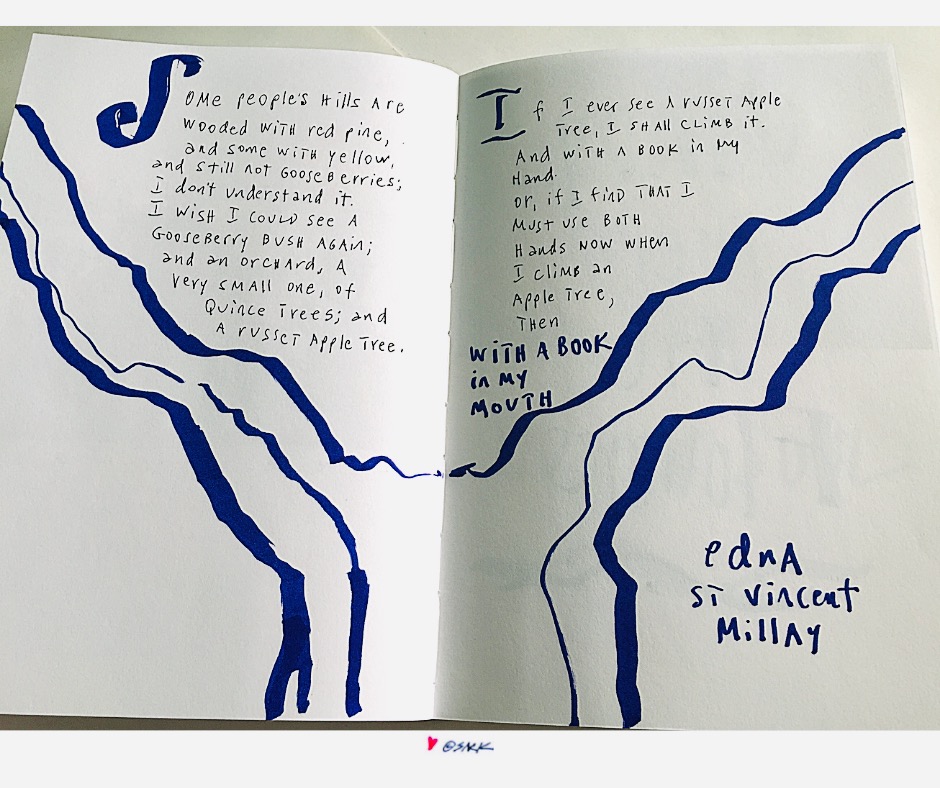 Some people's Hills Are
wooded with red pine,
and some with yellow,
and still not Gooseberries;
I don't understand it.
I wish I could see A
Gooseberry Bush Again;
and an orchard, A
very small one, of
Quince Trees; and
A russet Apple Tree.
If I ever see A russet Apple
Tree, I shall climb it.
And with A Book in my
Hand.
Or, if I find that I
Must use Both
Hands now when
I climb an
Apple Tree,
Then
WITH A BOOK
in my
MOUTH
edna
St Vincent
Millay
@SRK